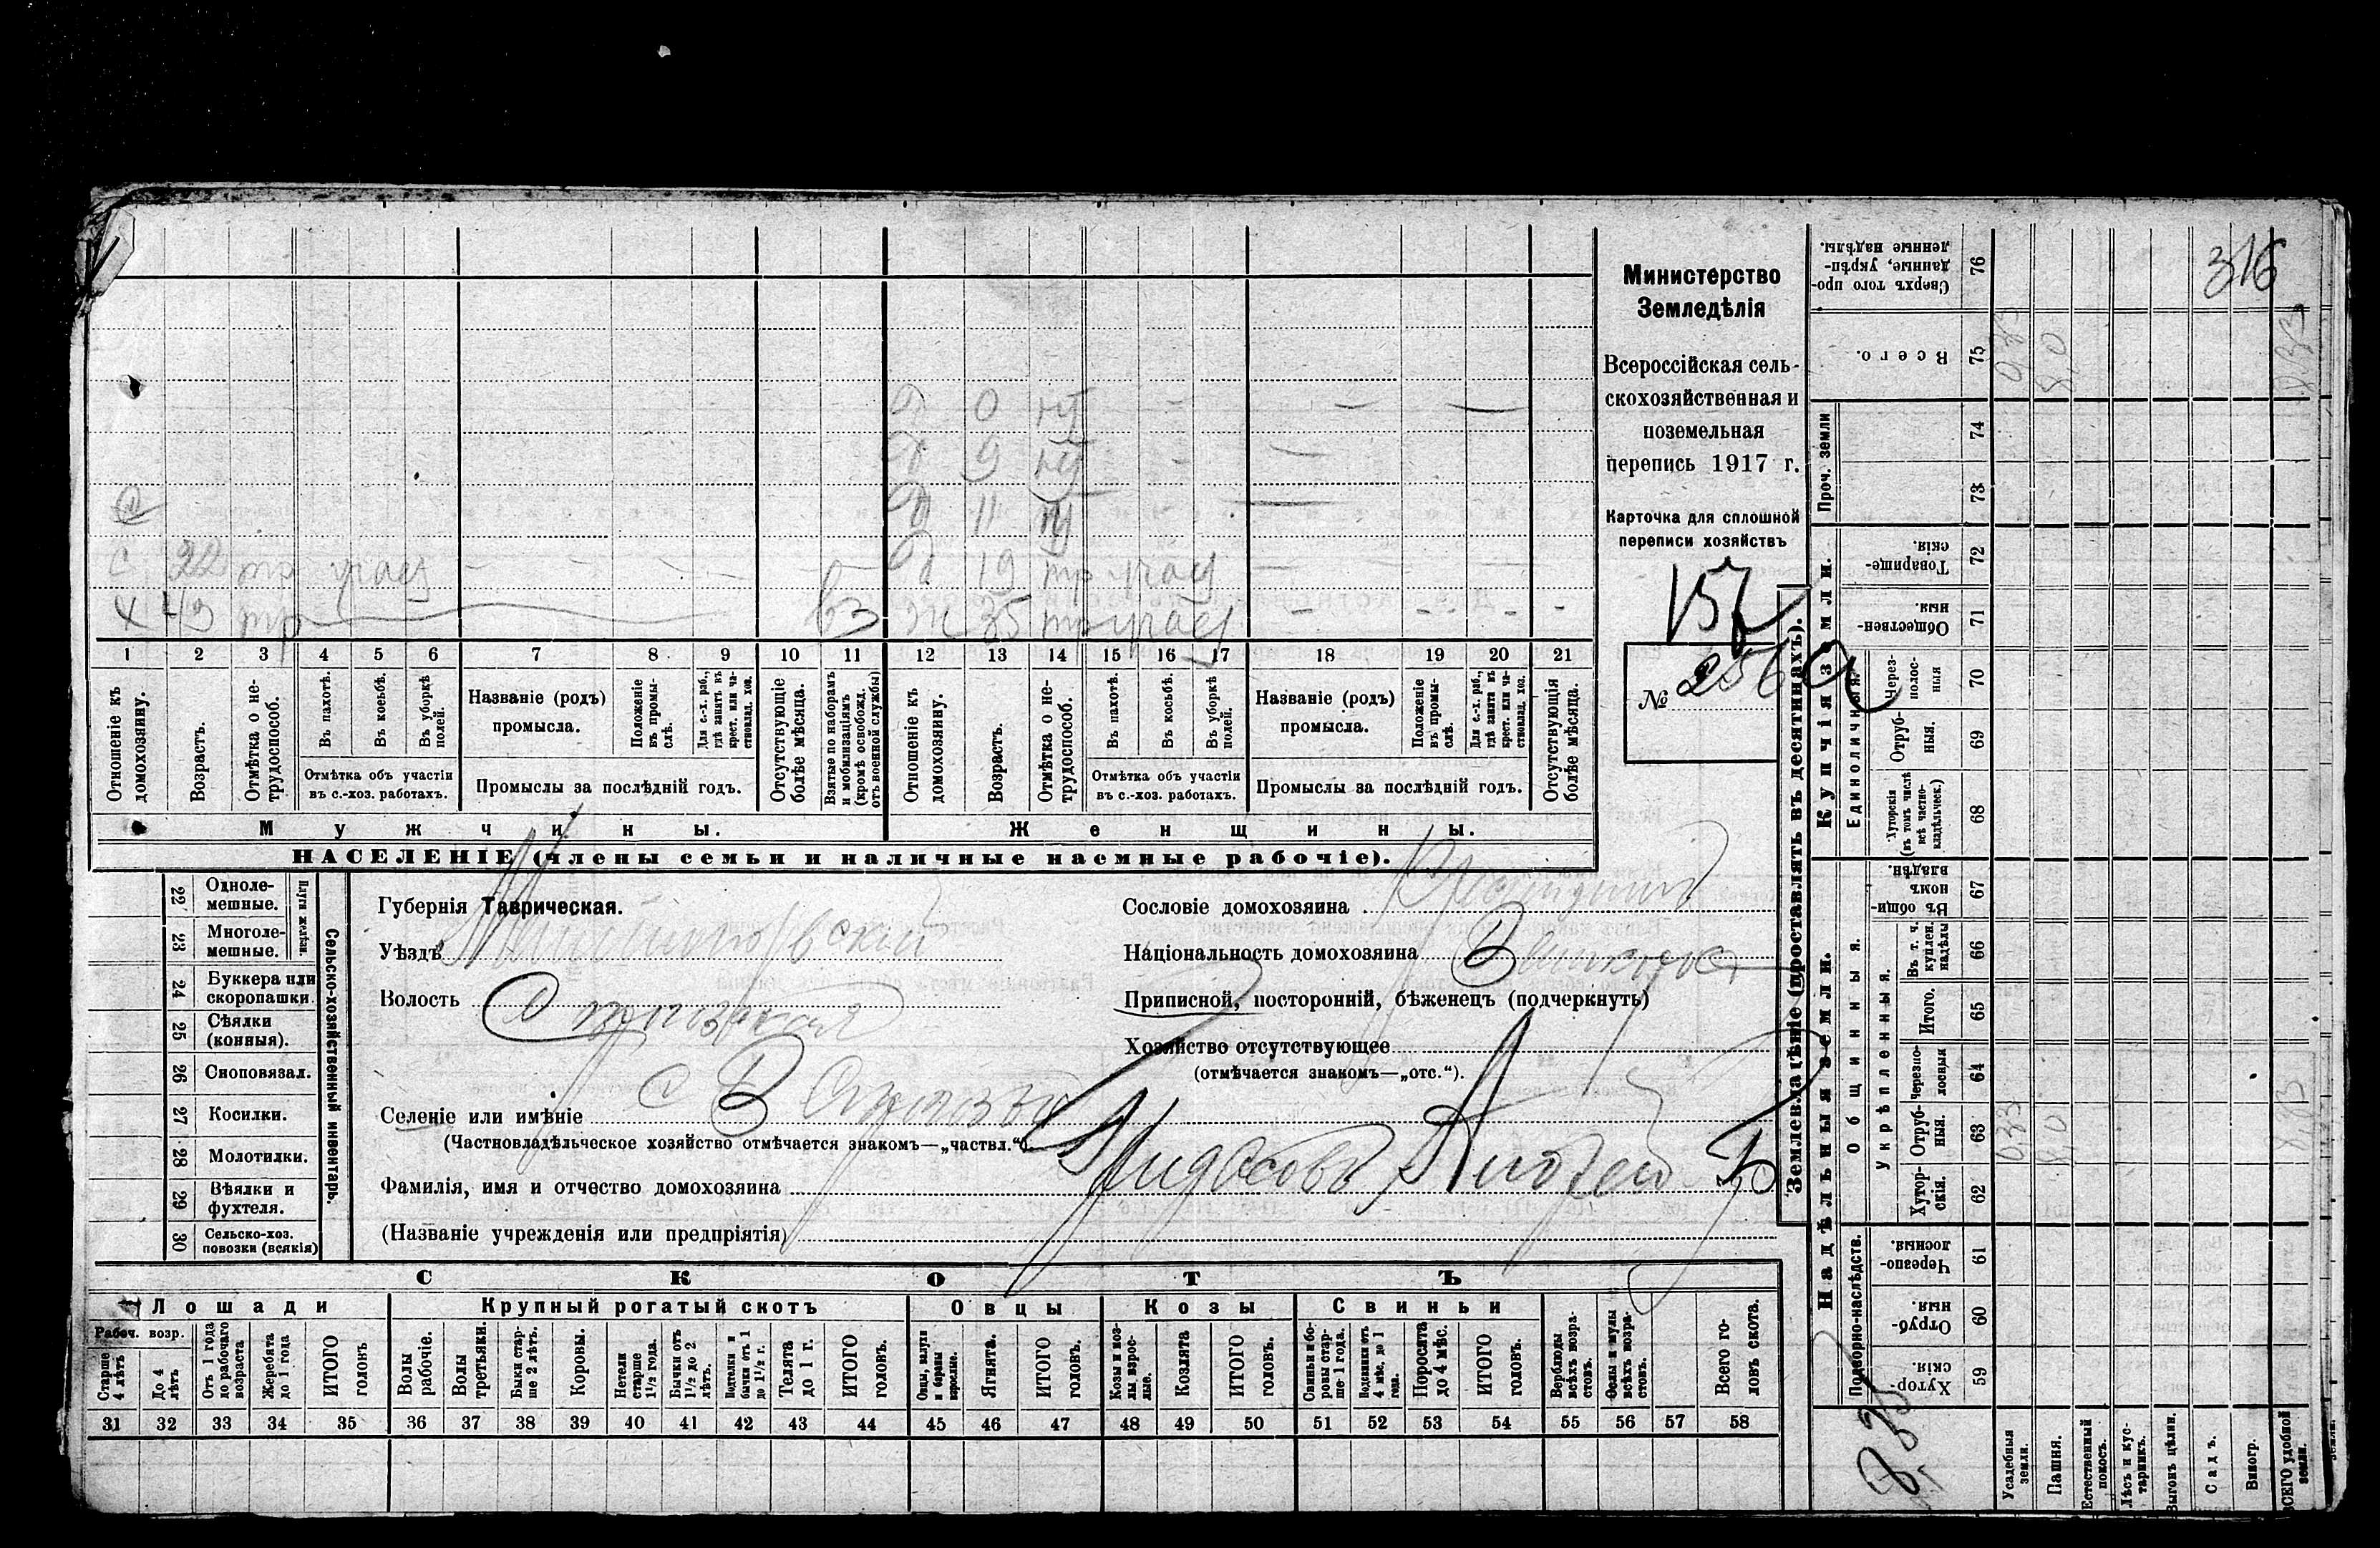 316
Министерство
Земледѣлія
Всероссійская сель-
скохозяйственная и
поземельная
перепись 1917 г.
Карточка для сплошной
переписи хозяйствъ
157
№ 256
д 0 н
д 9 н
д 11 н
с 22 тр участ
д 19 тр участ
х 43 тр
вз
ж 35 тр участ
1 2 3 4 5 6 7 8 9 10 11 12 13 14 15 16 17 18 19 20 21
Отношеніе къ домохозяину.
Возрастъ.
Отмѣтка о не-трудоспособ.
Въ пахотѣ.
Въ косьбѣ.
Въ уборкѣ полей.
Отмѣтка объ участіи
въ с.-хоз. работахъ.
Названіе (родъ)
промысла.
Положеніе въ промы-слѣ.
Для с.-х. раб., гдѣ занятъ въ крест. или ча-стновлад. хоз.
Промыслы за послѣдній годъ.
Отсутствующіе болѣе мѣсяца.
Взятые по наборамъ и мобилизаціямъ (кромѣ освобожд. отъ военной службы)
Отношеніе къ домохозяину.
Возрастъ.
Отмѣтка о не-трудоспособ.
Въ пахотѣ.
Въ косьбѣ.
Въ уборкѣ полей.
Отмѣтка объ участіи
въ с.-хоз. работахъ.
Названіе (родъ)
промысла.
Положеніе въ промы-слѣ.
Для с.-х. раб., гдѣ занятъ въ крест. или ча-стновлад. хоз.
Промыслы за послѣдній годъ.
Отсутствующія болѣе мѣсяца.
Мужчины.
Женщины.
НАСЕЛЕНІЕ (члены семьи и наличные наемные рабочіе).
Сельско-хозяйственный инвентарь.
Плуги желѣзн.
22 Одноле-мешные.
23 Многоле-мешные.
24 Буккера или скоропашки.
25 Сѣялки (конныя).
26 Сноповязал.
27 Косилки.
28 Молотилки.
29 Вѣялки и фухтеля.
30 Сельско-хоз. повозки (всякія)
Губернія Таврическая.
Уѣздъ
Волость
Селеніе или имѣніе с В
(Частновладѣльческое хозяйство отмѣчается знакомъ—„частвл.“).
Фамилія, имя и отчество домохозяина
(Названіе учрежденія или предпріятія)
Сословіе домохозяина
Національность домохозяина
Приписной, посторонній, бѣженецъ (подчеркнуть)
Хозяйство отсутствующее
(отмѣчается знакомъ—„отс.“).
СКОТЪ
Лошади
Крупный рогатый скотъ
Овцы
Козы
Свиньи
Рабоч. возр.
Старше 4 лѣтъ
До 4 лѣтъ
Отъ 1 года до рабочаго возраста
Жеребята до 1 года
ИТОГО головъ
Волы рабочіе.
Волы третьяки.
Быки стар-ше 2 лѣтъ.
Коровы.
Нетели старше 1½ года.
Бычки отъ 1½ до 2 лѣтъ.
Подтелки и бычки отъ 1 до 1½ г.
Телята до 1 г.
ИТОГО головъ.
Овцы, валухи и бараны взрослые.
Ягнята.
ИТОГО головъ.
Козы и коз-лы взрос-лые.
Козлята
ИТОГО головъ.
Свиньи и бо-ровы стар-ше 1 года.
Подсвинки отъ 4 мѣс. до 1 года.
Поросята до 4 мѣс.
ИТОГО головъ.
Верблюды всѣхъ возра-стовъ.
Ослы и мулы всѣхъ возра-стовъ.
Всего го-ловъ скота.
31 32 33 34 35 36 37 38 39 40 41 42 43 44 45 46 47 48 49 50 51 52 53 54 55 56 57 58
Землевладѣніе (проставлять въ десятинахъ).
Купчія земли.
Надѣльныя земли.
Проч. земли
Единоличныя.
Общинныя.
Укрѣпленныя.
Подворно-наслѣдств.
Сверхъ того про-данные, укрѣп-ленные надѣлы. 76
Всего. 75
74
73
Товарище-скія. 72
Обществен-ныя. 71
Черезполос-ныя 70
Отруб-ныя. 69
Хуторскія (въ томъ числѣ всѣ частно-владѣльческ.) 68
Въ общи-номъ владѣн. 67
Въ т. ч. куплен. надѣлы 66
Итого. 65
Черезпо-лосныя 64
Отруб-ныя. 63
Хутор-скія. 62
Черезпо-лосныя. 61
Отруб-ныя. 60
Хутор-скія. 59
0,33
8,0
8,33
Усадебныя земли.
Пашня.
Естественный покосъ.
Лѣсъ и кус-тарникъ.
Выгонъ цѣлин.
Садъ.
Виногр.
ВСЕГО удобной земли.